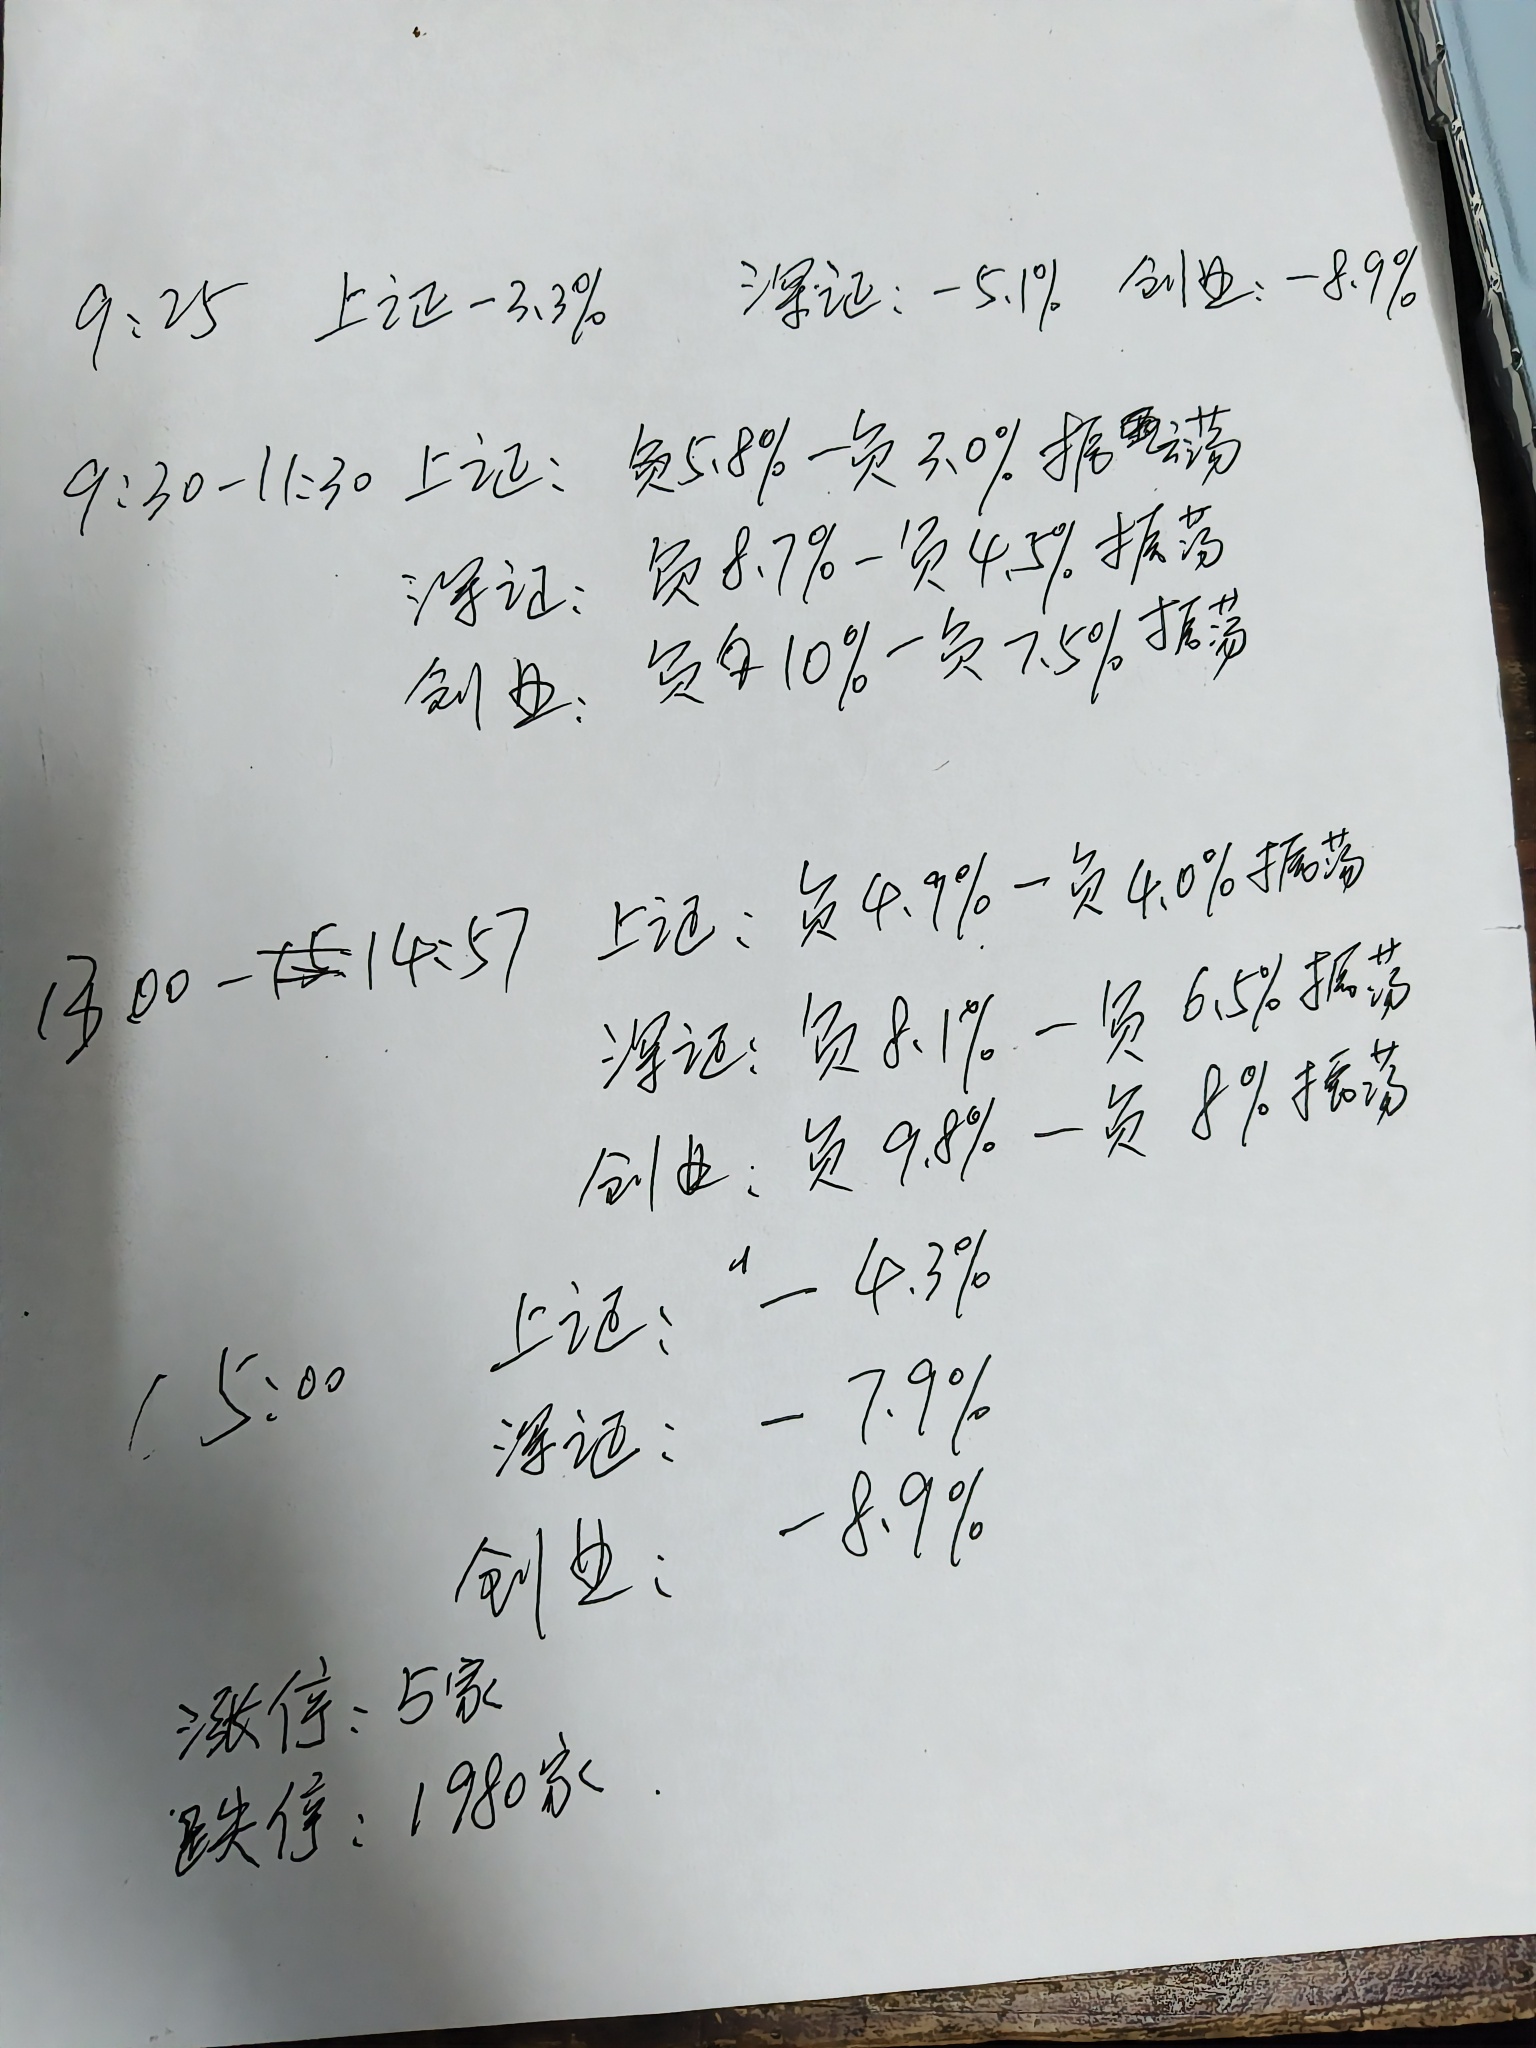 9:25 上证-3.3% 深证:-5.1% 创业:-8.9%
9:30-11:30 上证: 负5.8%-负3.0%振荡
深证: 负8.7%-负4.5%振荡
创业: 负10%-负7.5%振荡
13:00-14:57 上证: 负4.9%-负4.0%振荡
深证: 负8.1%-负6.5%振荡
创业: 负9.8%-负8%振荡
上证: -4.3%
15:00
深证: -7.9%
创业: -8.9%
涨停: 5家
跌停: 1980家.